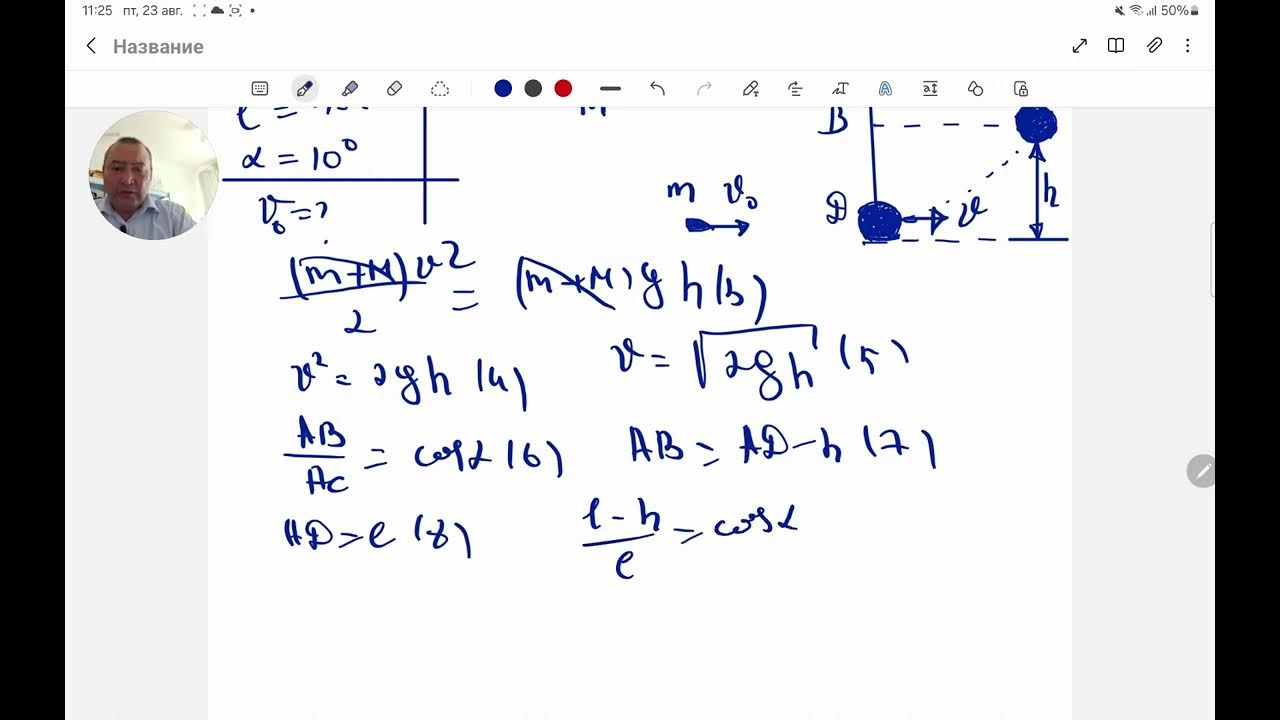 11:25 пт, 23 авг. 50%
Название
ℓ =
M
B
α = 10°
m v₀
h
v₀ = ?
D
v
(m+M)v²/2 = (m+M)gh (3)
v² = 2gh (4) v = √2gh (5)
AB/AC = cosα (6) AB = AD-h (7)
AD = ℓ (8) ℓ-h/ℓ = cosα